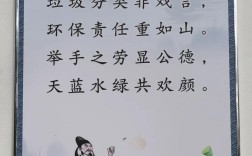 垃圾分类非戏言，
环保责任重如山。
举手之劳显公德，
天蓝水绿共欢颜。